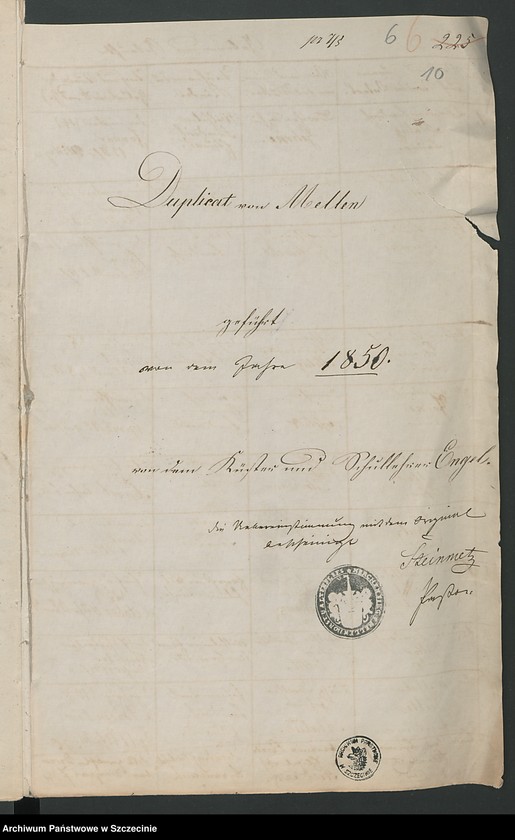 pr 7/5 6 6 225
10
Duplicat von Mellen
geführt
von dem Jahre 1850.
von dem Küster und Schullehrer Engel.
die Uebereinstimmung mit dem Original
bescheinigt
Steinmetz
Pastor.
ARCHIWUM PAŃSTWOWE
W SZCZECINIE
Archiwum Państwowe w Szczecinie